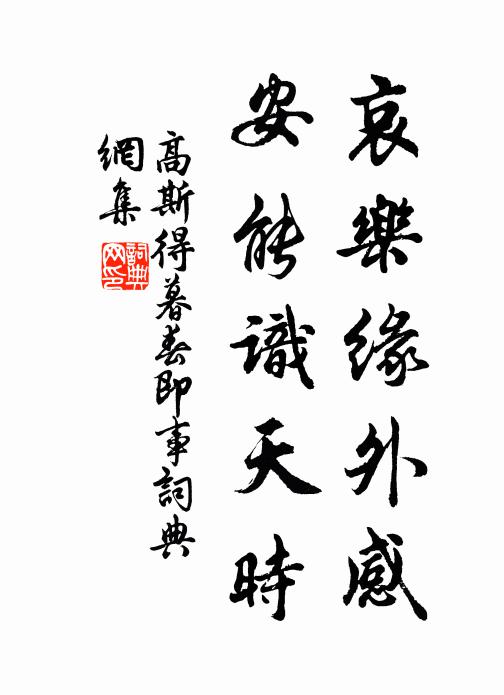 哀樂緣外感
安能識天時
高斯得暮春即事詞典
網集
詞典
网印